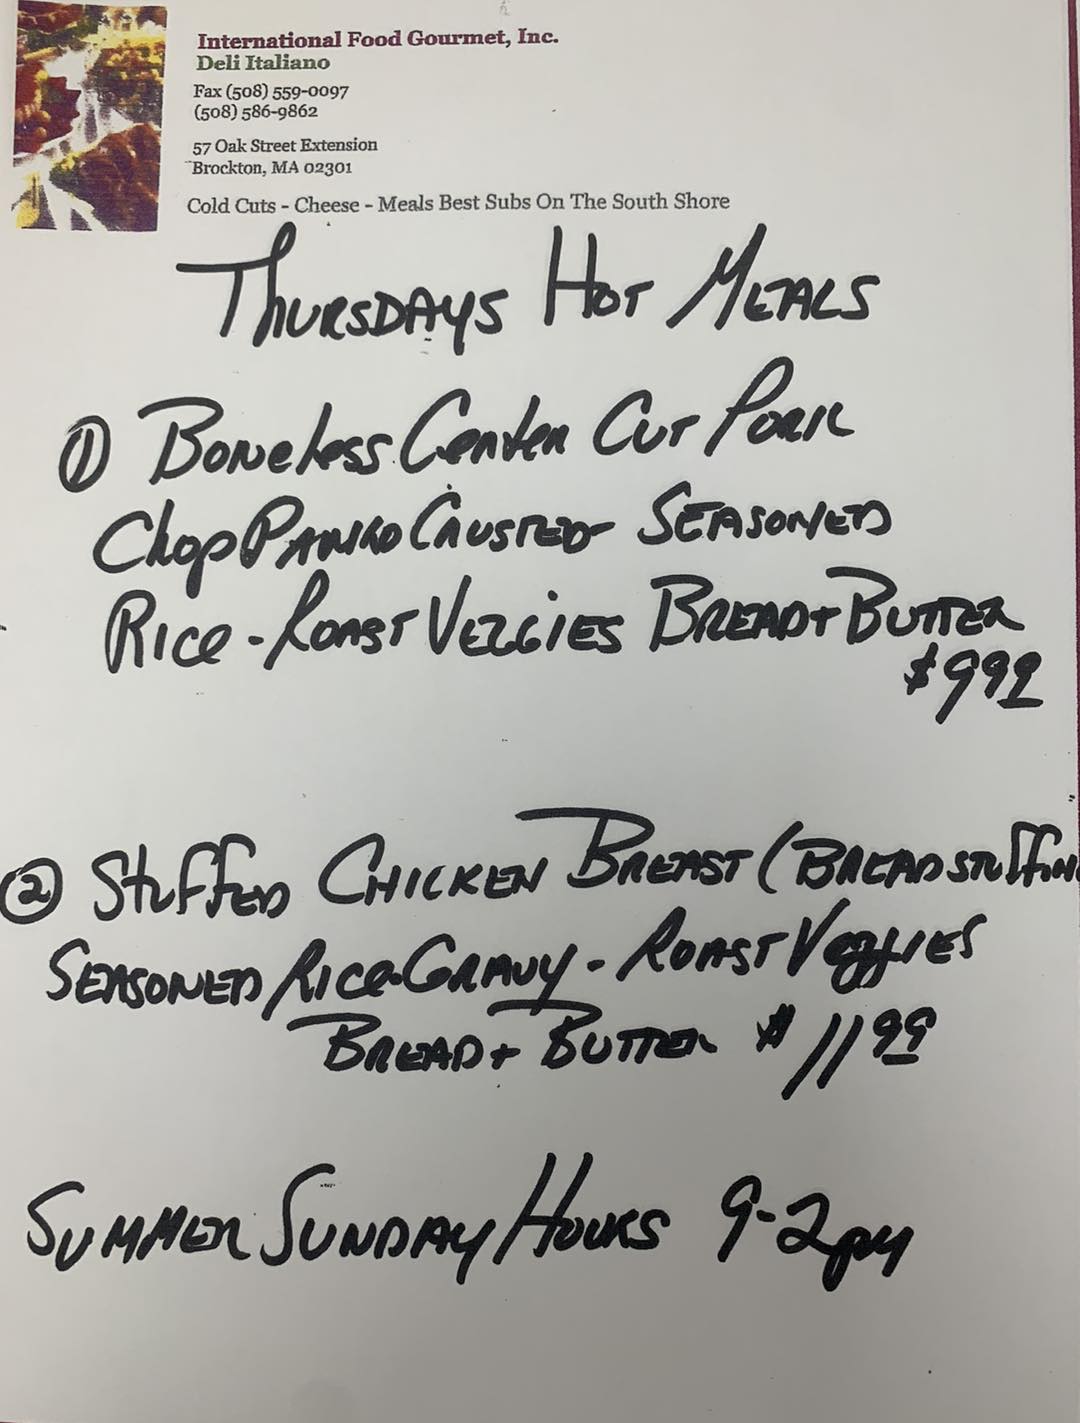 International Food Gourmet, Inc.
Deli Italiano
Fax (508) 559-0097
(508) 586-9862
57 Oak Street Extension
Brockton, MA 02301
Cold Cuts - Cheese - Meals Best Subs On The South Shore
Thursdays Hot Meals
① Boneless Center Cut Pork
Chop Panko Crusted Seasoned
Rice - Roast Veggies Bread + Butter
$9 99
② Stuffed Chicken Breast (Bread stuffin
Seasoned Rice - Gravy - Roast Veggies
Bread + Butter $ 11 99
Summer Sunday Hours 9-2pm